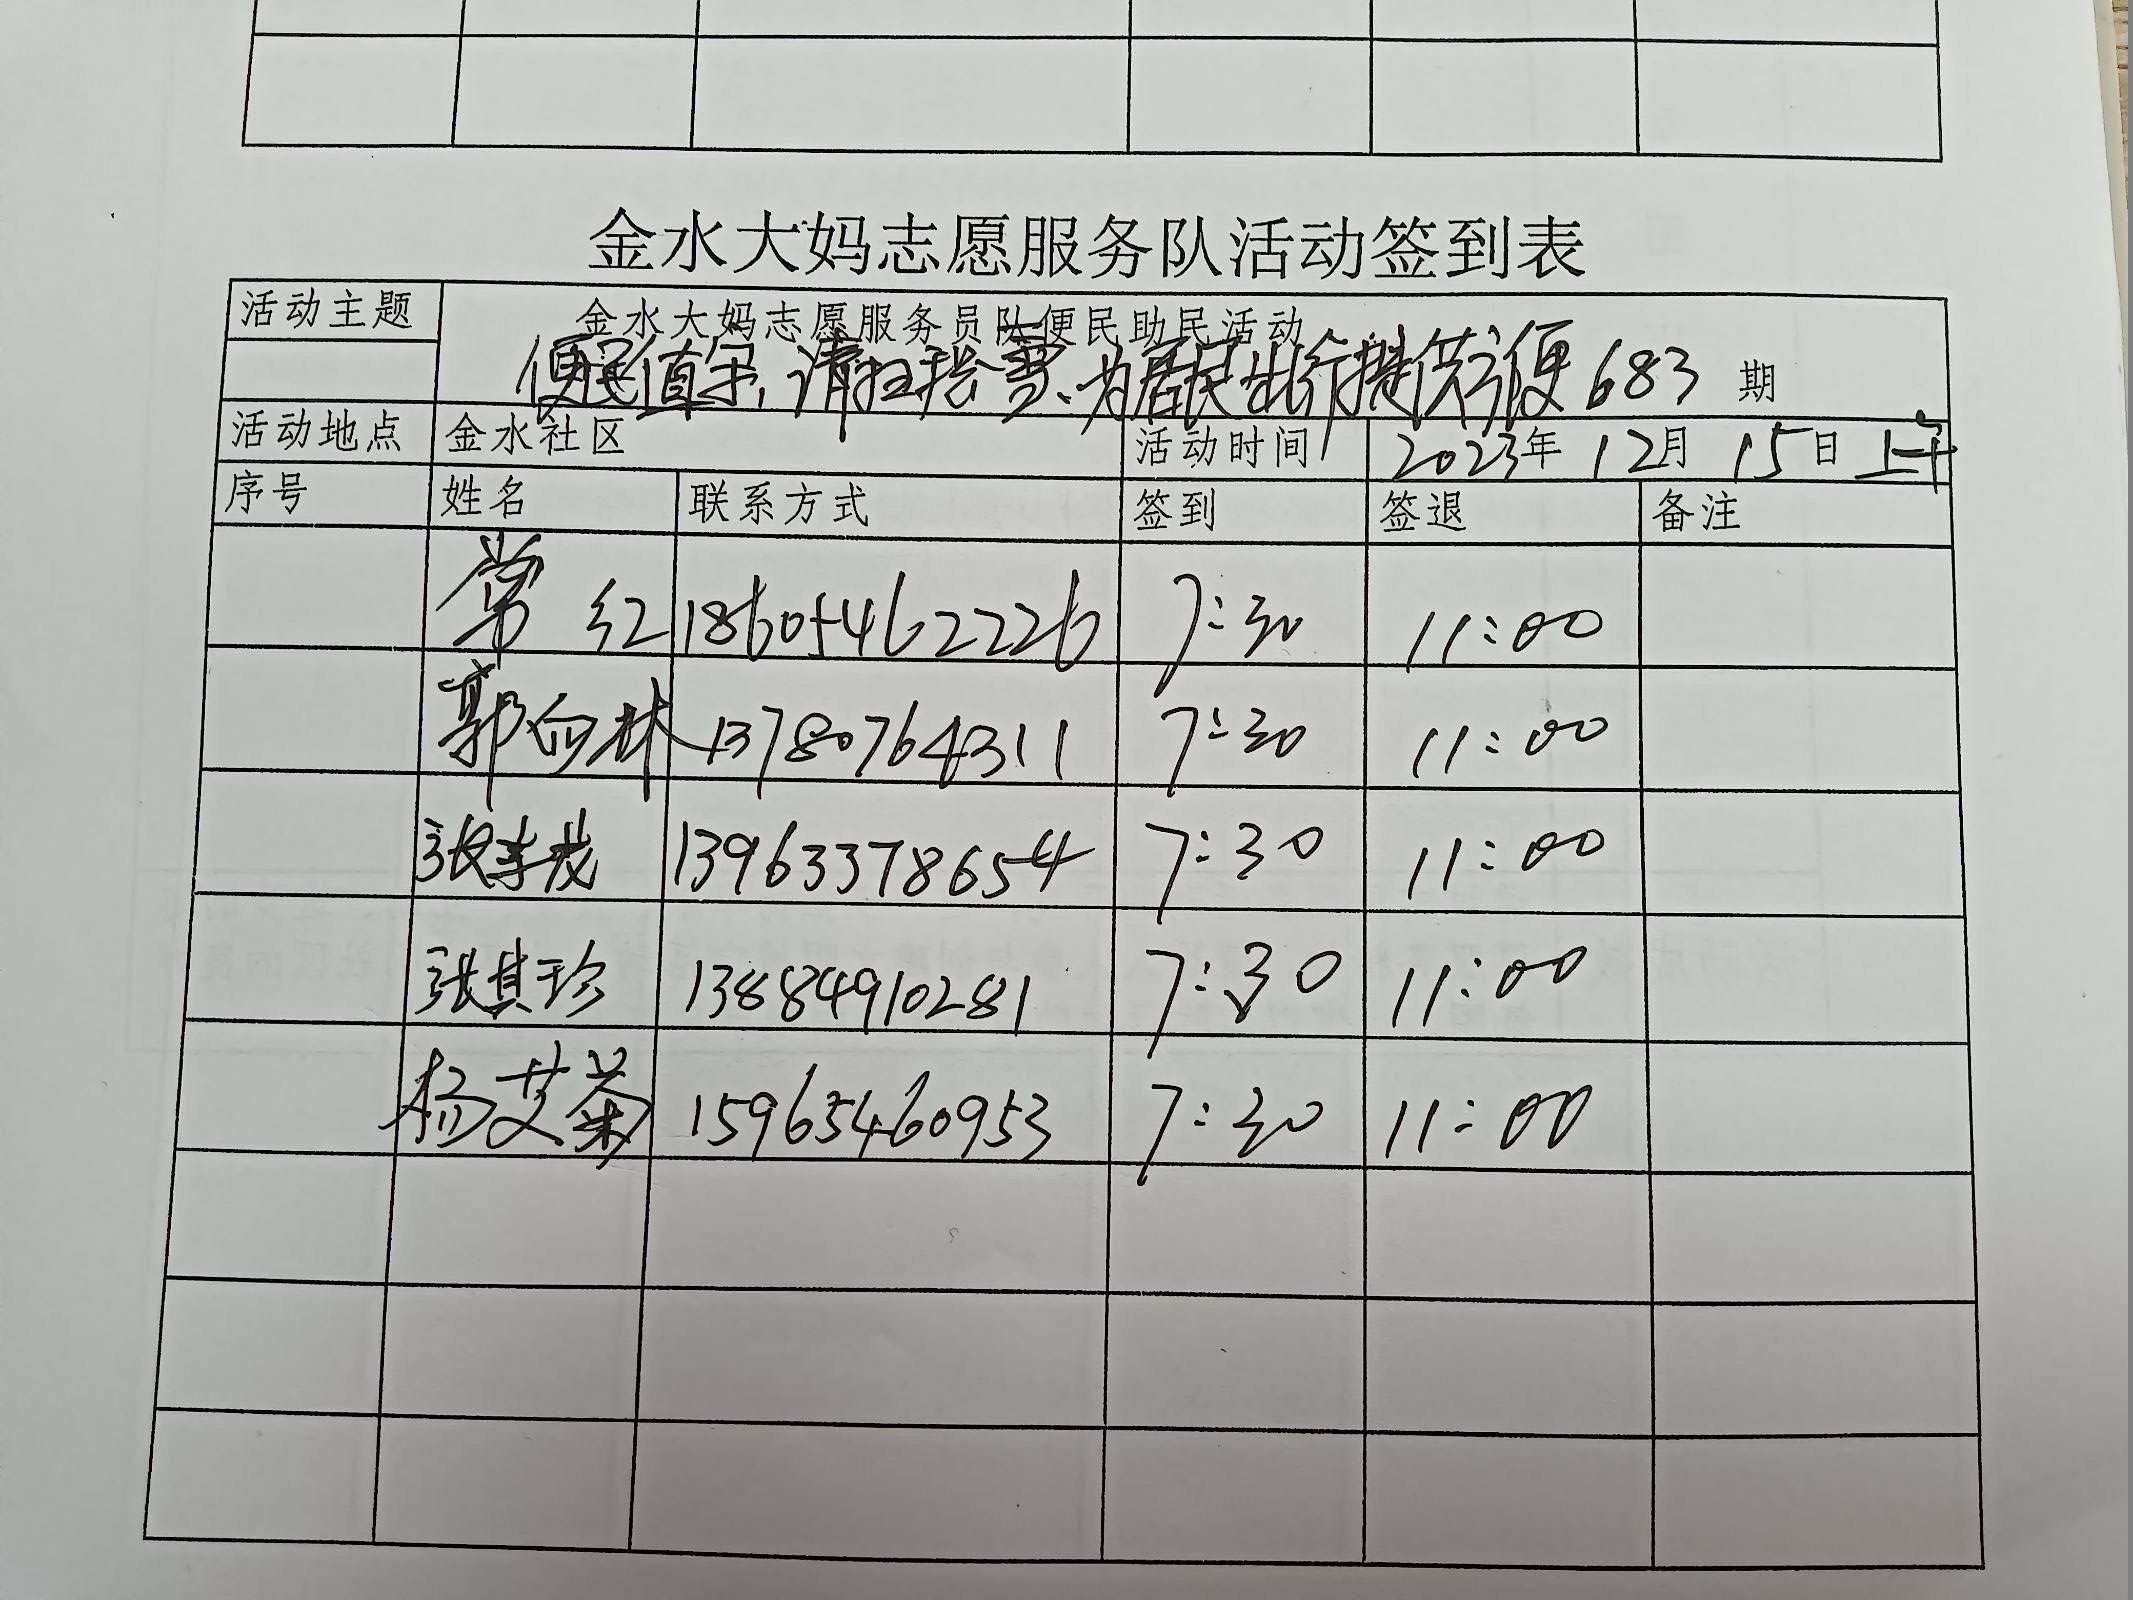 金水大妈志愿服务队活动签到表
活动主题 金水大妈志愿服务员队便民助民活动
便民值守、清扫积雪、为居民出行提供方便683 期
活动地点 金水社区 活动时间 2023年 12月 15日 上午
序号 姓名 联系方式 签到 签退 备注
常红 18605462226 7:30 11:00
郭向林 13780764311 7:30 11:00
张孝茂 13963378654 7:30 11:00
张其珍 13884910281 7:30 11:00
杨艾菊 15965460953 7:30 11:00